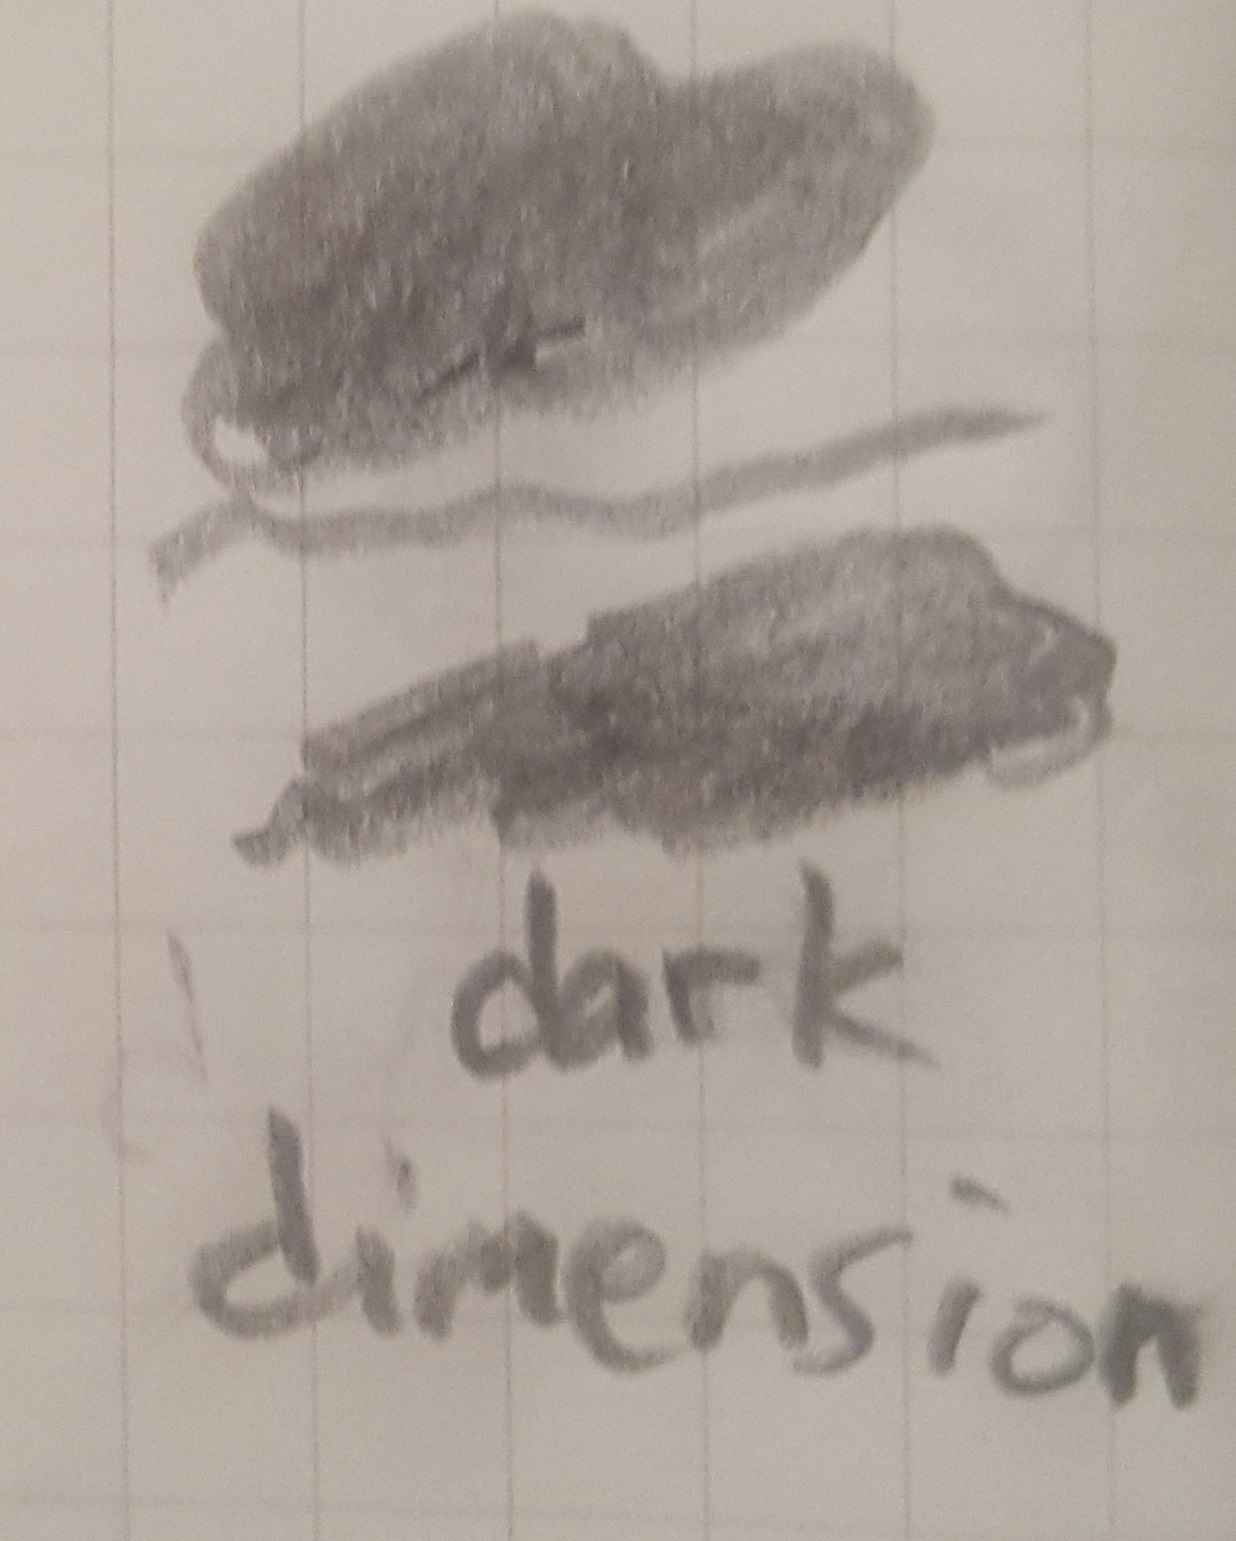 dark
dimension